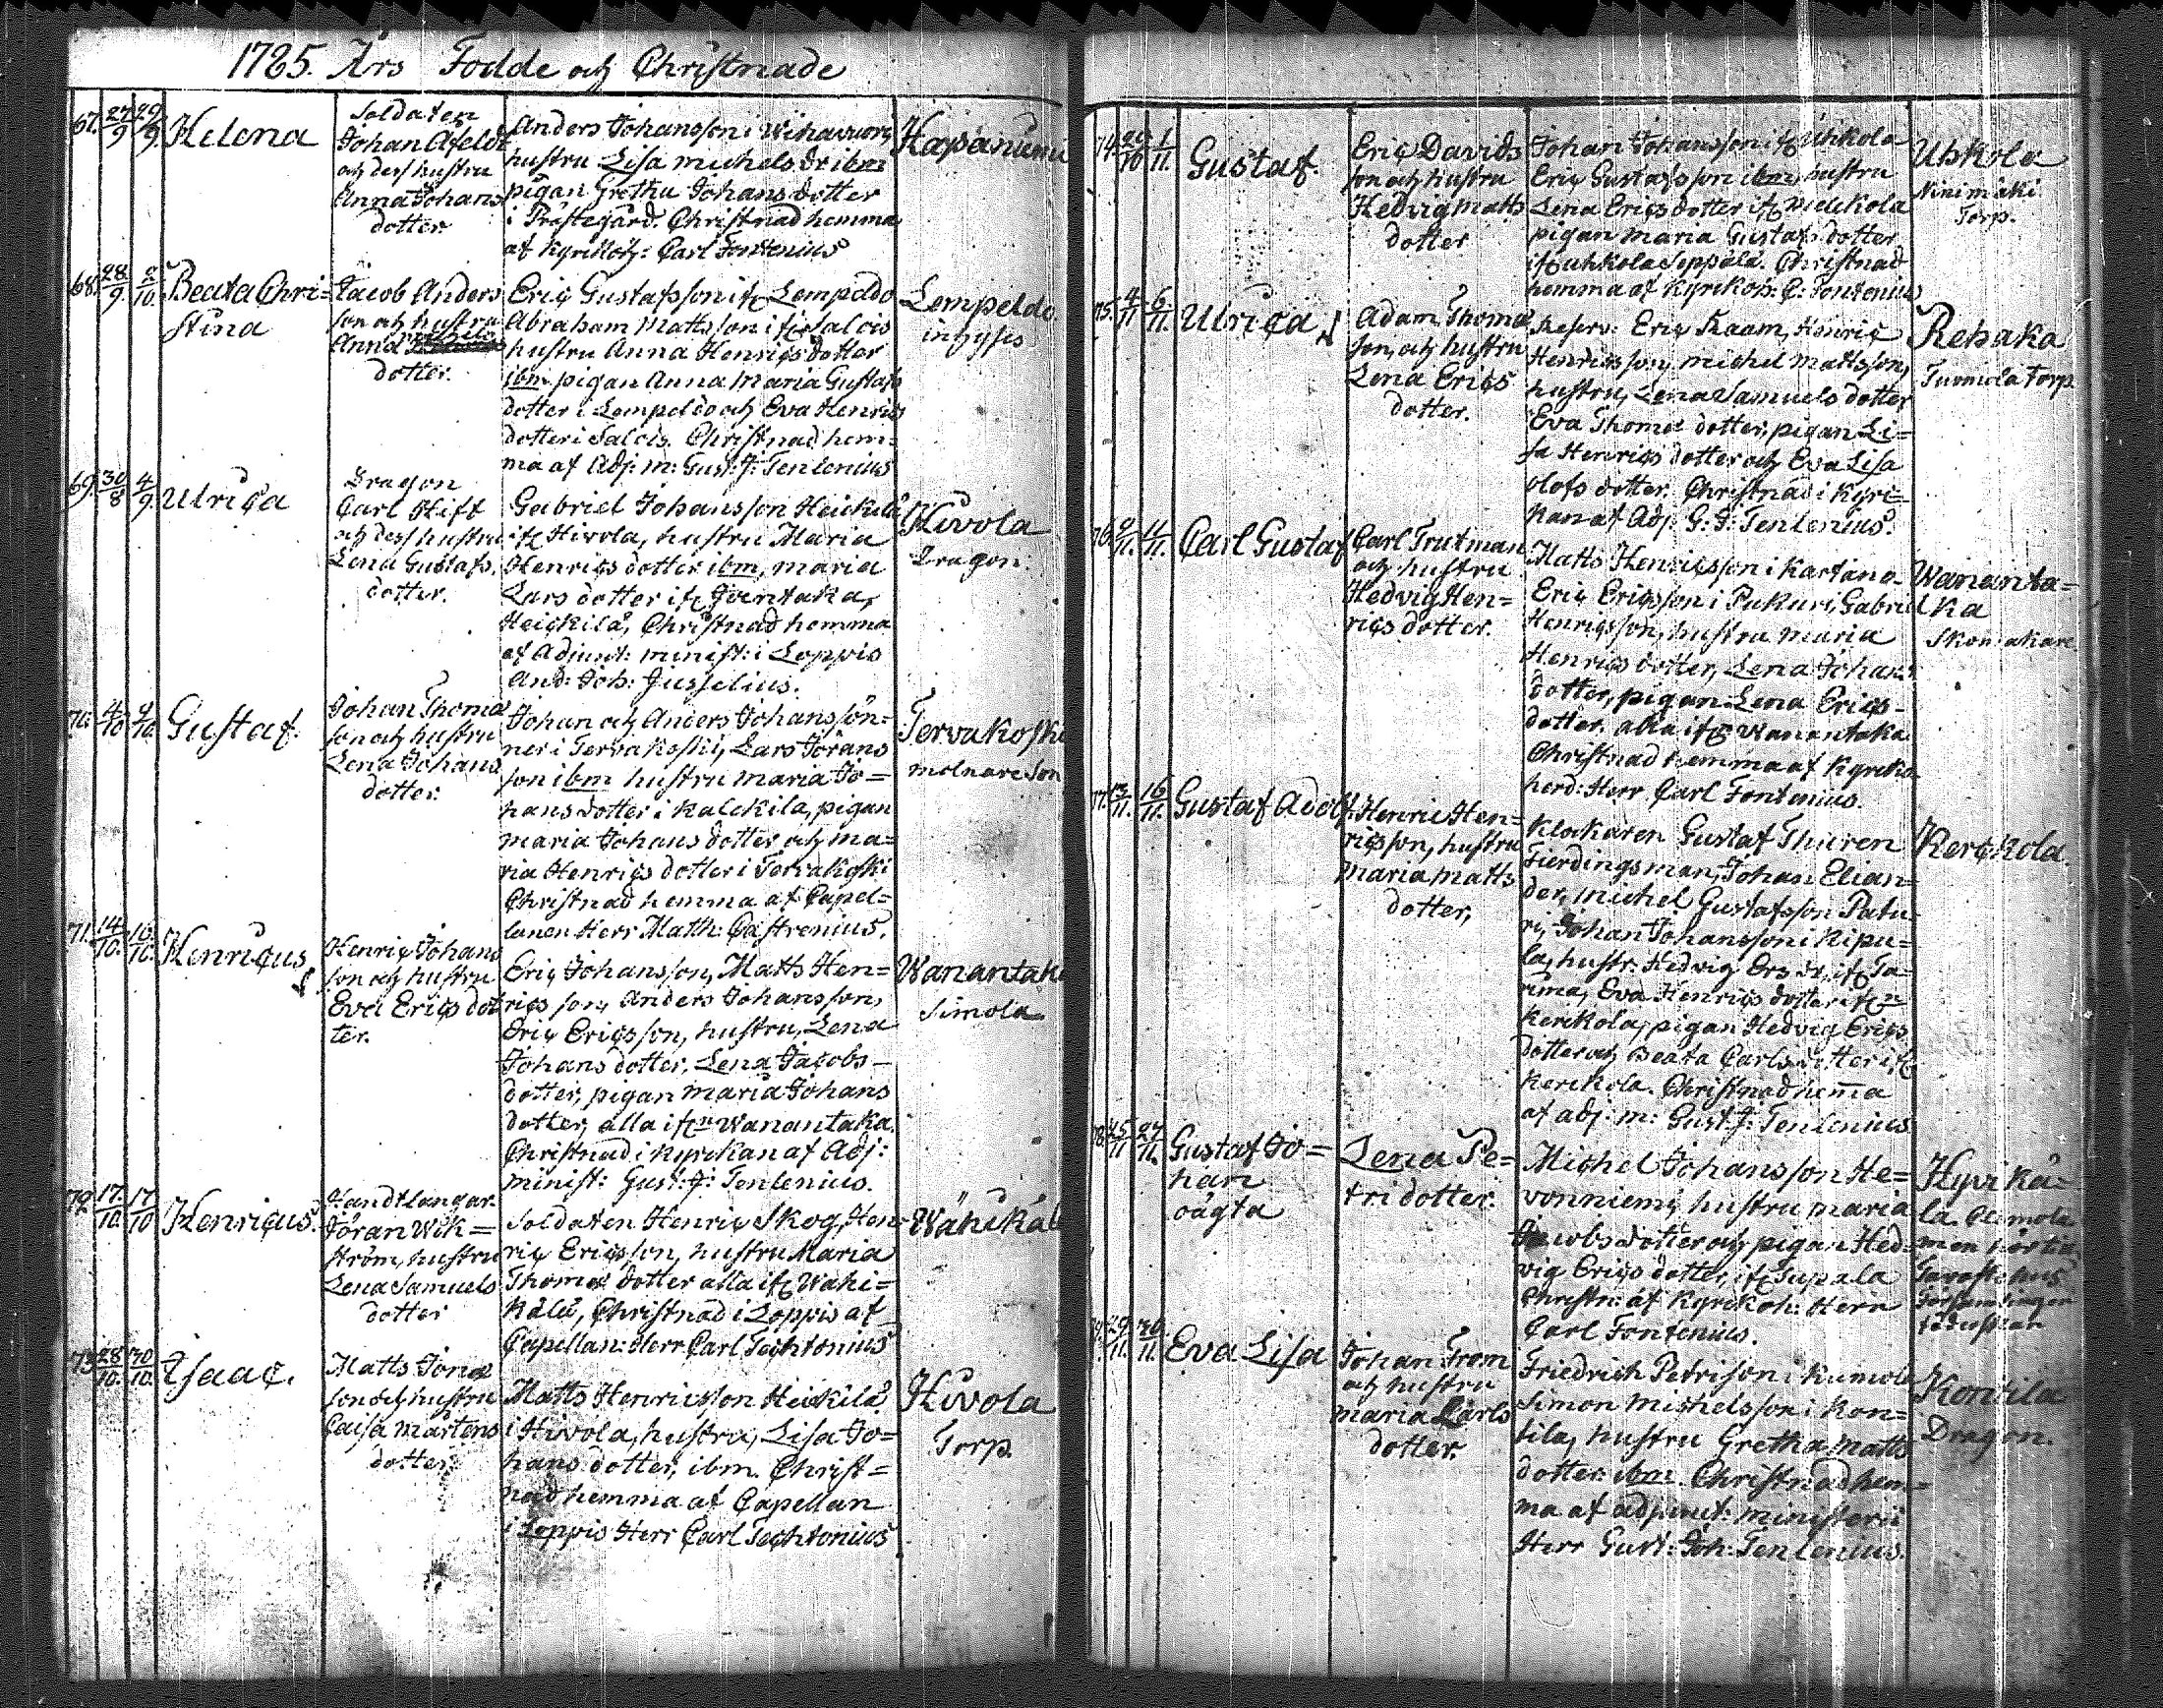 1785. Års Födde och Christnade
67. 27/9 29/9 Helena
Soldaten
Johan Afeldt
och dess hustru
Anna Johans
dotter
Anders Johansson i Wihavuori,
hustru Lisa Michels dr ibm
pigan Gretha Johans dotter
i Prästegård. Christnad hemma
af Kyrkoh: Carl Fontenius
Hapanumi
68. 28/9 2/10 Beata Chri=
stina
Jacob Anders
son och hustru
Anna
dotter.
Eric Gustafsson ifr Lempeldo
Abraham Mattsson ifr Salois
hustru Anna Henrics dotter
ibm pigan Anna Maria Gustafs
dotter i Lempeldo och Eva Henrics
dotter i Salois. Christnad hem=
ma af Adj: m: Gust: J: Tenlenius
Lempeldo
inhyses
69. 30/8 4/9 Ulrica
Dragon
Carl Hift
och dess hustru
Lena Gustafs
dotter.
Gabriel Johansson Heickilä
ifr Hivola, hustru Maria
Henrics dotter ibm, Maria
Lars dotter ifr Iventaka,
Heickilä, Christnad hemma
af Adjunct: minist: i Loppis
And: Joh: Jusselius.
Hivola
Dragon.
70. 4/10 9/10 Gustaf.
Johan Thomæ
son och hustru
Lena Johans
dotter.
Johan och Anders Johanssön=
ner i Tervakoski, Lars Jörans
son ibm hustru Maria Jo=
hans dotter i Kalckila, pigan
Maria Johans dotter och Ma=
ria Henrics dotter i Tervakoski
Christnad hemma af Capel=
lanen Herr Math: Castrenius.
Tervakoski
molnare Son
71. 14/10 16/10 Henricus
Henric Johans
son och hustru
Eva Erics dot
ter.
Eric Johansson, Matts Hen=
rics son, Anders Johansson,
Eric Ericsson, hustru, Lena
Johans dotter, Lena Jacobs=
dotter, pigan Maria Johans
dotter, alla ifr Wanantaka.
Christnad i Kyrckan af Adj:
minist: Gust: J: Tenlenius.
Wanantaka
Simola.
72. 17/10 17/10 Henricus.
Handtlangar.
Jöran Wik=
ström, hustru
Lena Samuels
dotter
Soldaten Henric Skog, Hen=
ric Ericsson, hustru Maria
Thomæ dotter alla ifr Wähi=
kälä, Christnad i Loppis af
Capellan: Herr Carl Techtonius
Wähikälä
73. 28/10 30/10 Isaac.
Matts Jonæ
son och hustru
Caisa Mårtens
dotter.
Matts Henricsson Heickilä
i Hivola, hustru, Lisa Jo=
hans dotter, ibm. Christ=
nad hemma af Capellan
i Loppis Herr Carl Techtonius
Hivola
Torp.
74. 1/11 Gustaf.
Eric Davids
son och hustru
Hedvig Matts
dotter
Johan Johansson ifr Uhkola
Eric Gustafsson ibm, hustru
Lena Erics dotter ifr
pigan Maria Gustafs dotter
ifr Uhkola Seppälä. Christnad
hemma af Kyrkoh: C: Fontenius
Uhkola
Ninimäki
Torp.
75. 4/11 6/11 Ulrica
Adam Thomæ
son, och hustru
Lena Erics
dotter.
Reserv: Eric Raam, Henric
Henricsson, Michel Mattsson,
hustru, Lena Samuels dotter
Eva Thomæ dotter, pigan Li=
sa Henrics dotter och Eva Lisa
Olofs dotter. Christnad i Kyr=
kan af Adj. G: J: Tenlenius.
Rehaka
Tunnola Torp
76. 9/11 11/11 Carl Gustaf
Carl Trutman
och hustru
Hedvig Hen=
rics dotter.
Matts Henricsson i Kartano
Eric Ericsson i Pukuri, Gabriel
Henricsson, hustru Maria
Henrics dotter, Lena Johans
dotter, pigan Lena Erics=
dotter, alla ifr Wanantaka
Christnad hemma af Kyrcko=
herd: Herr Carl Fontenius.
Wananta=
ka
Skomakare
77. 13/11 16/11 Gustaf Adolf.
Henric Hen=
ricsson, hustru
Maria Matts
dotter,
Klockaren Gustaf Thuren
Fierdingsman, Johan Elian=
der, Michel Gustafsson Patu=
ri, Johan Johansson i Kipu=
la, hustr: Hedvig Ers dr, ifr Ta=
rima, Eva Henrics dotter ifr
Kerckola, pigan Hedvig Erics
dotter och Beata Carls dotter ifr
Kerckola. Christnad hemma
af adj: m: Gust: J: Tenlenius
Kerckola.
78. 25/11 27/11 Gustaf Jo=
han
oägta
Lena Pe=
tri dotter.
Michel Johansson He=
vonniemi, hustru Maria
Jacobs dotter och pigan Hed=
vig Erics dotter, ifr Tupala
Christn: af Kyrkoh: Herr
Carl Fontenius.
Hyvikä=
la.
79. 29/11 30/11 Eva Lisa
Johan From
och hustru
Maria Carls
dotter.
Friedrich Petrison i Kumola
Simon Michelsson i Kon=
tila, hustru Gretha Matts
dotter ibm Christnad hem=
ma af adjunct: ministerii
Herr Gust: Joh: Tenlenius.
Kontila
Dragon.